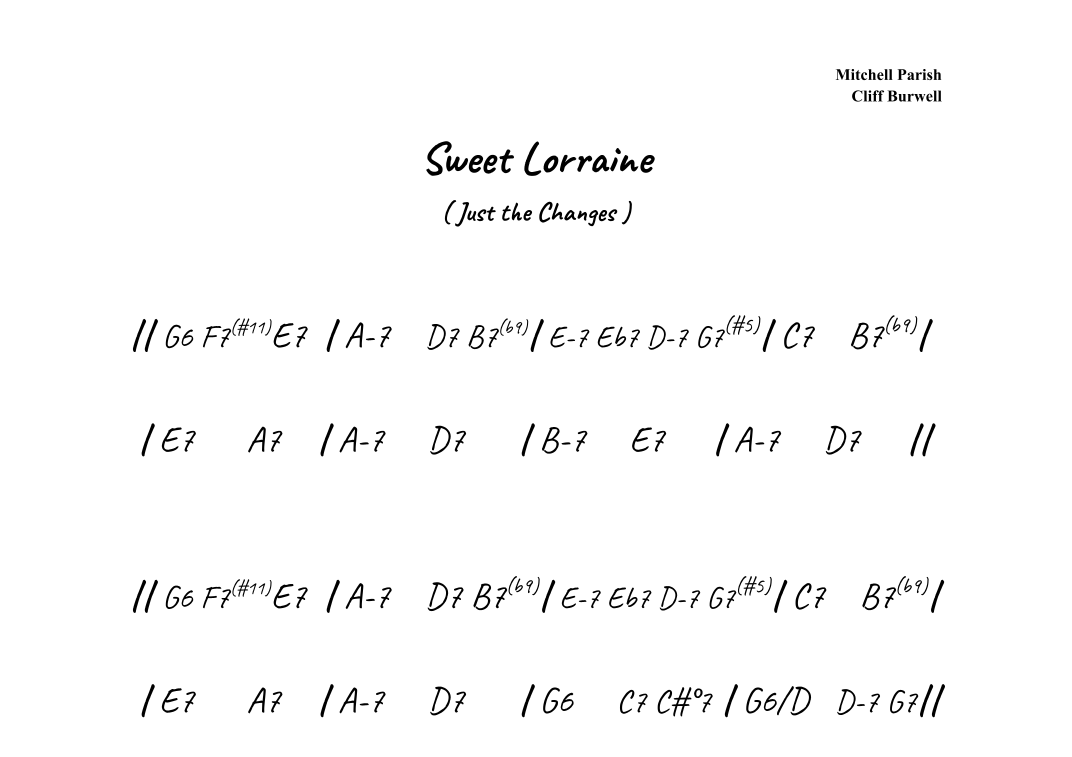 Mitchell Parish
Cliff Burwell
Sweet Lorraine
( Just the Changes )
|| G6 F7(#11) E7 | A-7 D7 B7(b9) | E-7 Eb7 D-7 G7(#5) | C7 B7(b9) |
| E7 A7 | A-7 D7 | B-7 E7 | A-7 D7 ||
|| G6 F7(#11) E7 | A-7 D7 B7(b9) | E-7 Eb7 D-7 G7(#5) | C7 B7(b9) |
| E7 A7 | A-7 D7 | G6 C7 C#º7 | G6/D D-7 G7 ||